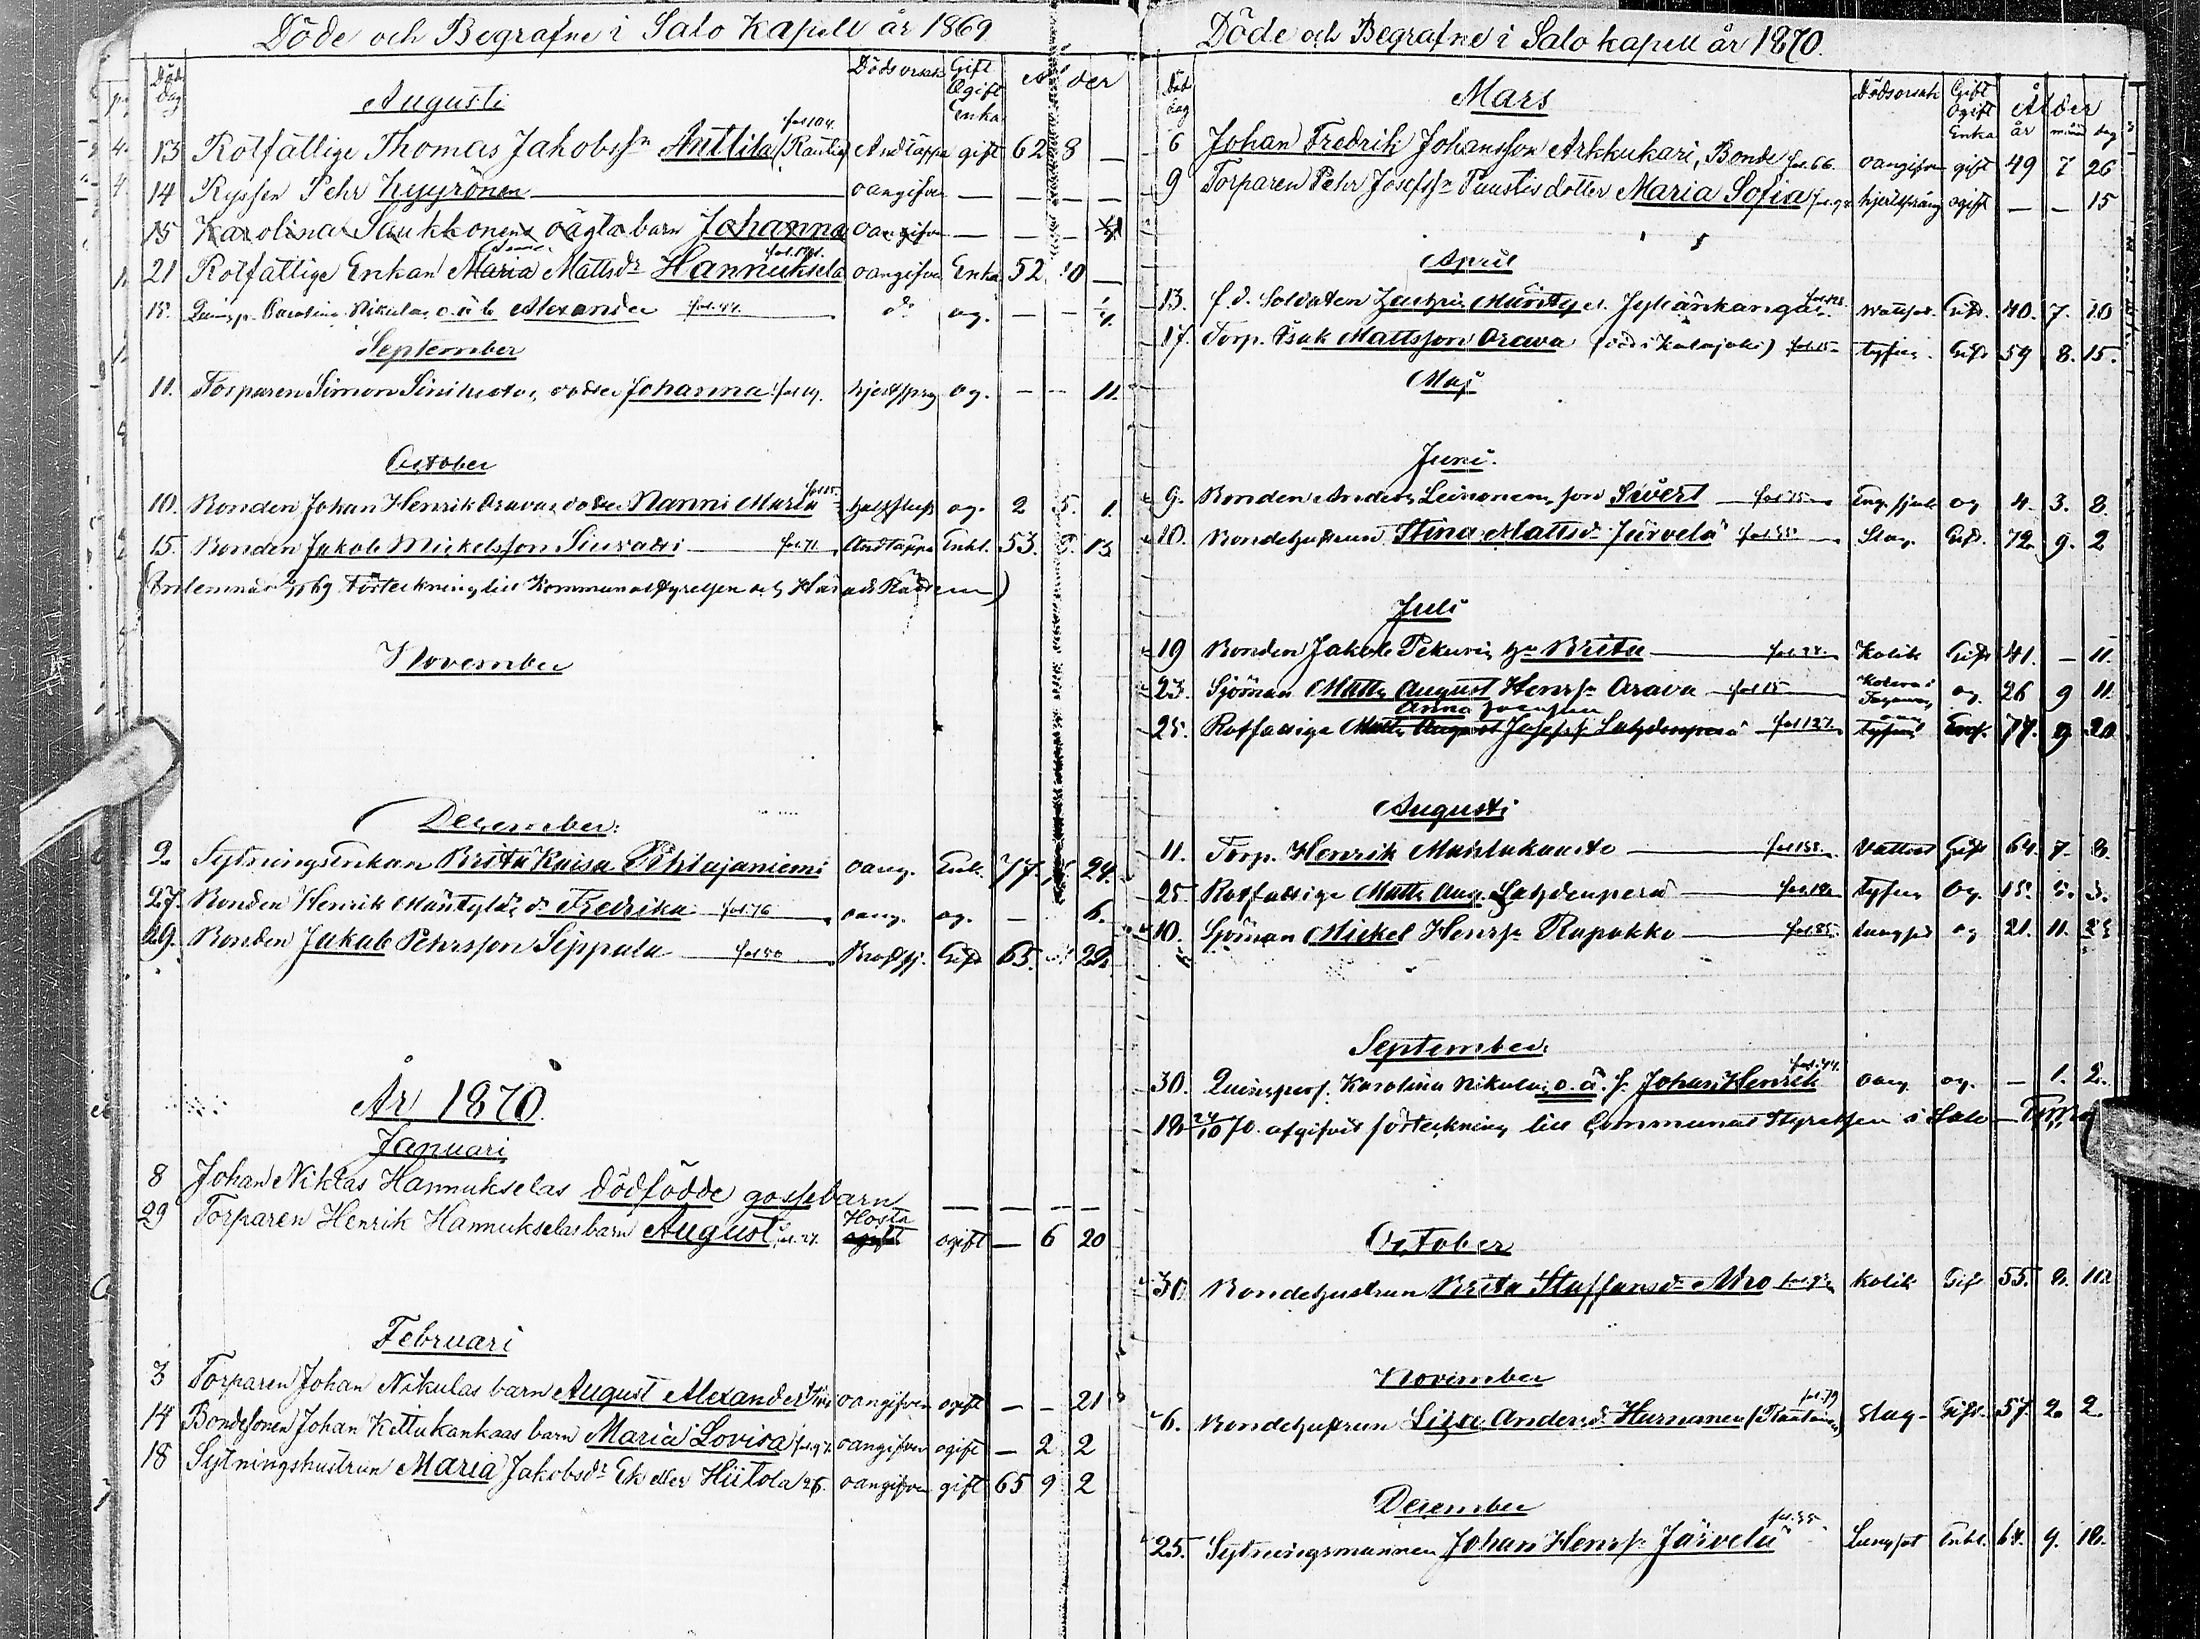 Döde och Begrafne i Salo Kapell år 1869
Död dag
Dödsorsak Gift Ogift Enka Ålder
Augusti
13 Rotfattige Thomas Jakobss:n Anttila (Rautio) fol 104. Andtäppa gift 62 8 —
14 Ryssen Pehr Kyyrönen oangifven — — — —
15 Karolina Saukkonens oägta barn Johanna oangifven — — —
21 Rotfattige Enkan Maria Mattsd:r Hannuksela oangifven Enka 52 10 —
18. Carolina Nikulas o.ä. b. Alexander fol. 44. d:o og. — —
September
11. Torparen Simon dotter Johanna fol 19. hjertsprg og. — — 11.
October
10. Bonden Johan Henrik Oravas dotter Nanni Maria fol 15. og. 2 5. 1.
15. Bonden Jakob Mickelsson fol. 71 Andtäppa Enkl. 53. 13
69 Förteckning till Kommunalstyrelsen och
November
December.
2. Sytningsenkan Brita Kaisa Pihlajaniemi oang. Enk. 77. 24.
27. Bonden Henrik Mäntyläs d:r Fredrika fol. 76 oang. og. — 6.
29. Bonden Jakob Pehrsson Sippala fol 50 Gift 65. 22.
År 1870.
Januari
8 Johan Niklas Hannukselas dödfödde gossebarn — — — —
29 Torparen Henrik Hannukselas barn August fol. 27. Hosta ogift — 6 20
Februari
3 Torparen Johan Nikulas barn August Alexander oangifven ogift — — 21
14 Bondesonen Johan Kittukankaas barn Maria Lovisa oangifven ogift — 2 2
18 Sytningshustrun Maria Jakobsd:r Ek eller Hiitola 26. oangifven gift 65 9 2
Döde och Begrafne i Salo kapell år 1870.
Död dag
Dödsorsak Gift Ogift Enka Ålder år mån dag
Mars
6 Johan Fredrik Johansson Arkkukari, Bonde fol. 66. oangifven gift 49 7 26
9 Torparen Pehr Josefss:n Paustis dotter Maria Sofia hjertsprång ogift — — 15
April
13. f.d. Soldaten Mänty Jyliänkangas Gift. 40. 7. 20
17. Torp. Isak Mattsson Orava (död i Kalajoki) fol 15 tyfus Gift 59 8. 15.
Maj
Juni.
9. Bonden Anders Leinonens son Sivert fol 75 og 4. 3. 8.
10. Bondehustrun Stina Mattsd:r Järvelä fol 55 Slag. Gift. 72. 9. 2
Juli
19 Bonden Jakob Pekuris h:u Brita Kolik Gift 41. — 11.
23. Sjöman Matts August Henrs:n Orava fol 15 og. 26 9 11
Anna Josefsn
25. Rotfattige Matts August Josefss:n Lahdenperä fol 127. tyfus 77. 9 20
Augusti
11. Torp. Henrik Vattsot Gift 64. 7. 8.
25 Rotfattige Matts Aug. Lahdenperä tyfus Og. 3.
10. Sjöman Mickel Henrs:n Rapakko fol 85. lungsot og 21. 11. 25
September.
30. Quinspers. Karolina Nikulas o.ä. s. Johan Henrik fol. 44. oang og. — 1. 2.
24/10 70. afgifvit förteckning till Communal Styrelsen i Salo
October
30. Bondehustrun Brita Staffansd:r Aho Kolik Gift 55. 8.
November
6. Bondehustrun Liisa Andersd:r Hurnanen (Rautio) fol. 79 Slag Gift. 57 2. 2.
December
25. Sytningsmannen Johan Henrs:n Järvelä fol. 55 Lungsot Enkl. 64. 9.